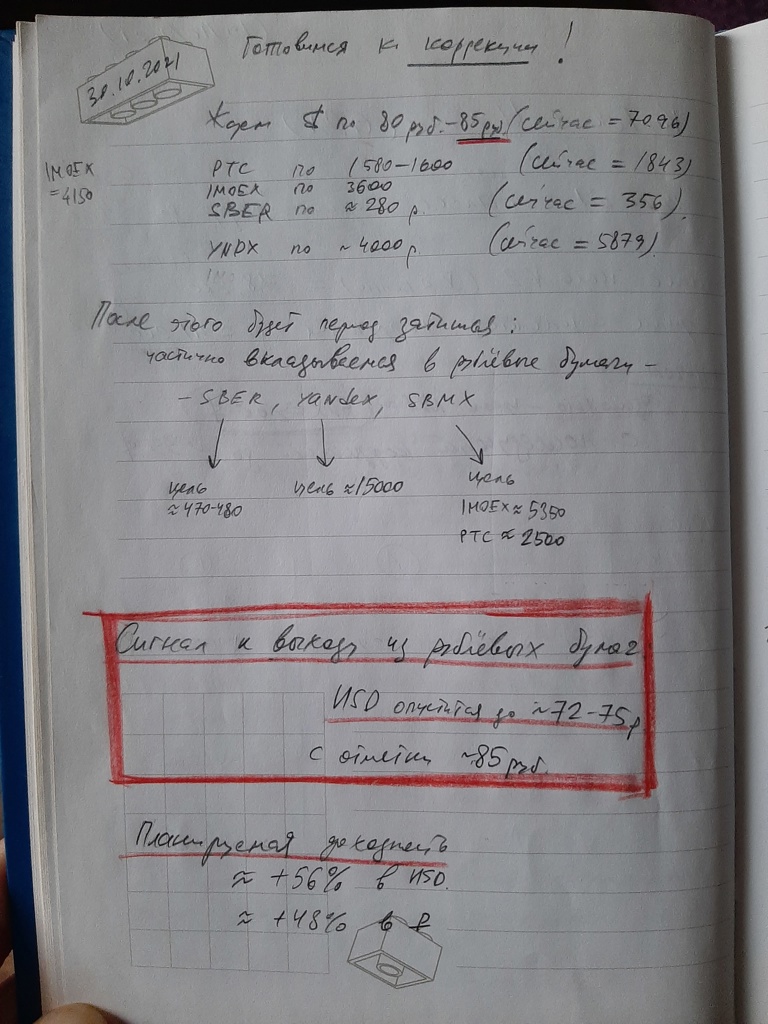 Готовимся к коррекции!
30.10.2021
Ждем $ по 80 руб.-85 руб. (сейчас = 70.96)
IMOEX = 4150
РТС по 1580-1600 (сейчас = 1843)
IMOEX по 3600
SBER по ≈ 280 р. (сейчас = 356).
YNDX по ~4000 р. (сейчас = 5879).
После этого будет период затишья:
частично вкладываемся в рублёвые бумаги -
- SBER, Yandex, SBMX
цель ≈ 470-480
цель ≈ 15000
цель
IMOEX ≈ 5350
РТС ≈ 2500
Сигнал к выходу из рублёвых бумаг
USD опустится до ~72-75 р
с отметки ~85 руб.
Планируемая доходность
≈ +56% в USD.
≈ +48% в ₽